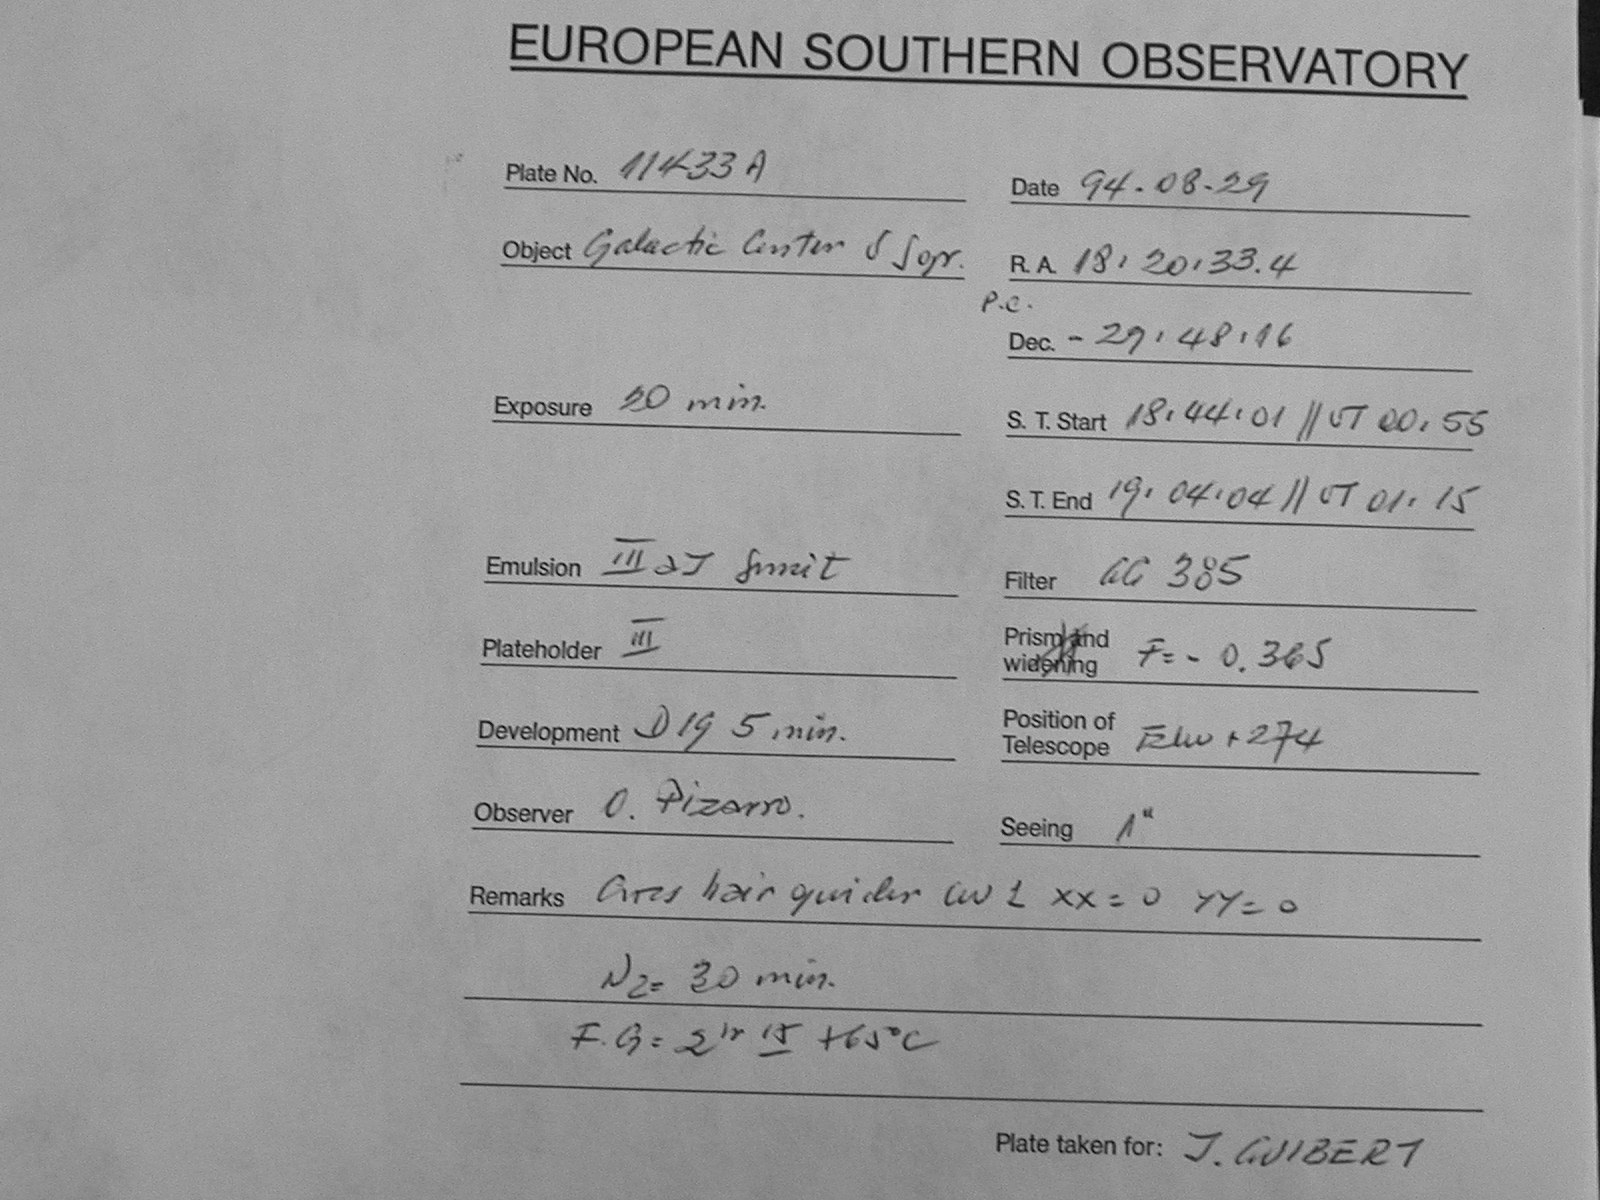 EUROPEAN SOUTHERN OBSERVATORY
Plate No. 11433 A
Date 94.08.29
Object Galactic Center
R. A. 18, 20, 33.4
P.C.
Dec. - 29, 48, 16
Exposure 20 min.
S. T. Start 18, 44, 01 // UT 00, 55
S. T. End 19, 04, 04 // UT 01, 15
Emulsion III aJ
Filter GG 385
Plateholder III
Prism and widening F = - 0.365
Development D 19 5 min.
Position of Telescope +274
Observer O. Pizarro.
Seeing 1"
Remarks hair guider XX = 0 YY = 0
N2 = 30 min.
F.G = 2hr 15 +65°C
Plate taken for: J. GUIBERT